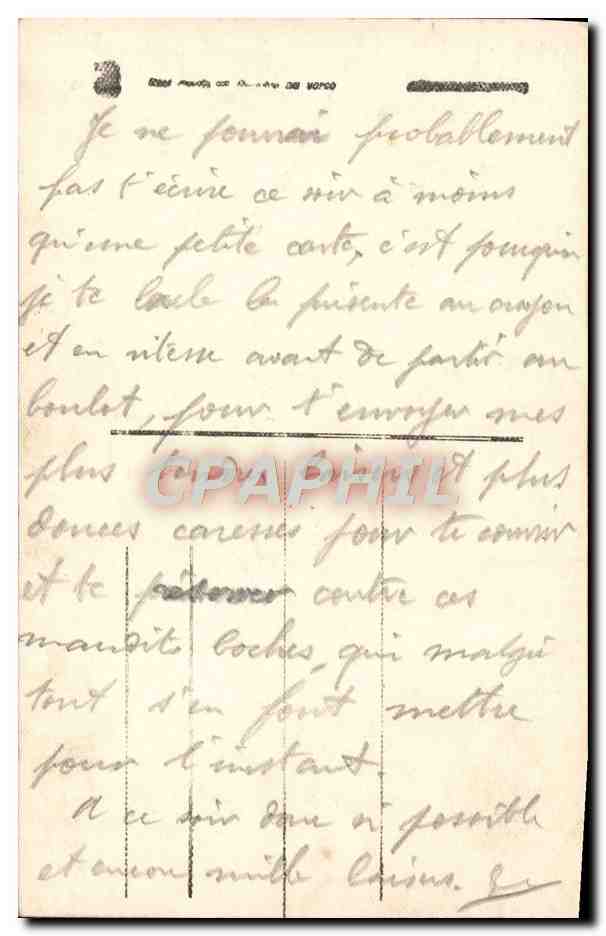 Je ne pourrai probablement
pas t'écrire ce soir à moins
qu'une petite carte, c'est pourquoi
je te la présente au crayon
et en vitesse avant de partir au
boulot, pour t'envoyer mes
plus baisers et plus
CPAPHIL
douces caresses pour te couvrir
et te contre ces
maudits boches, qui malgré
tout s'en font mettre
pour l'instant.
A ce soir donc si possible
et encore mille baisers.